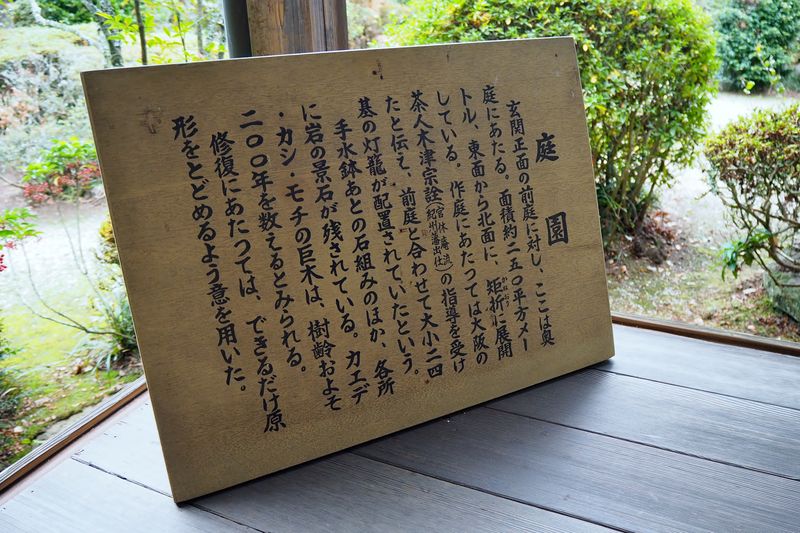 庭園
玄関正面の前庭に対し、ここは奥
庭にあたる。面積約二五〇平方メー
トル、東面から北面に、矩折に展開
かねおり
している。作庭にあたつては大阪の
茶人木津宗詮(官休庵流 紀州藩出仕)の指導を受け
たと伝え、前庭と合わせて大小二四
基の灯籠が配置されていたという。
手水鉢あとの石組みのほか、各所
に岩の景石が残されている。カエデ
・カシ・モチの巨木は、樹齢およそ
二〇〇年を数えるとみられる。
修復にあたつては、できるだけ原
形をとどめるよう意を用いた。